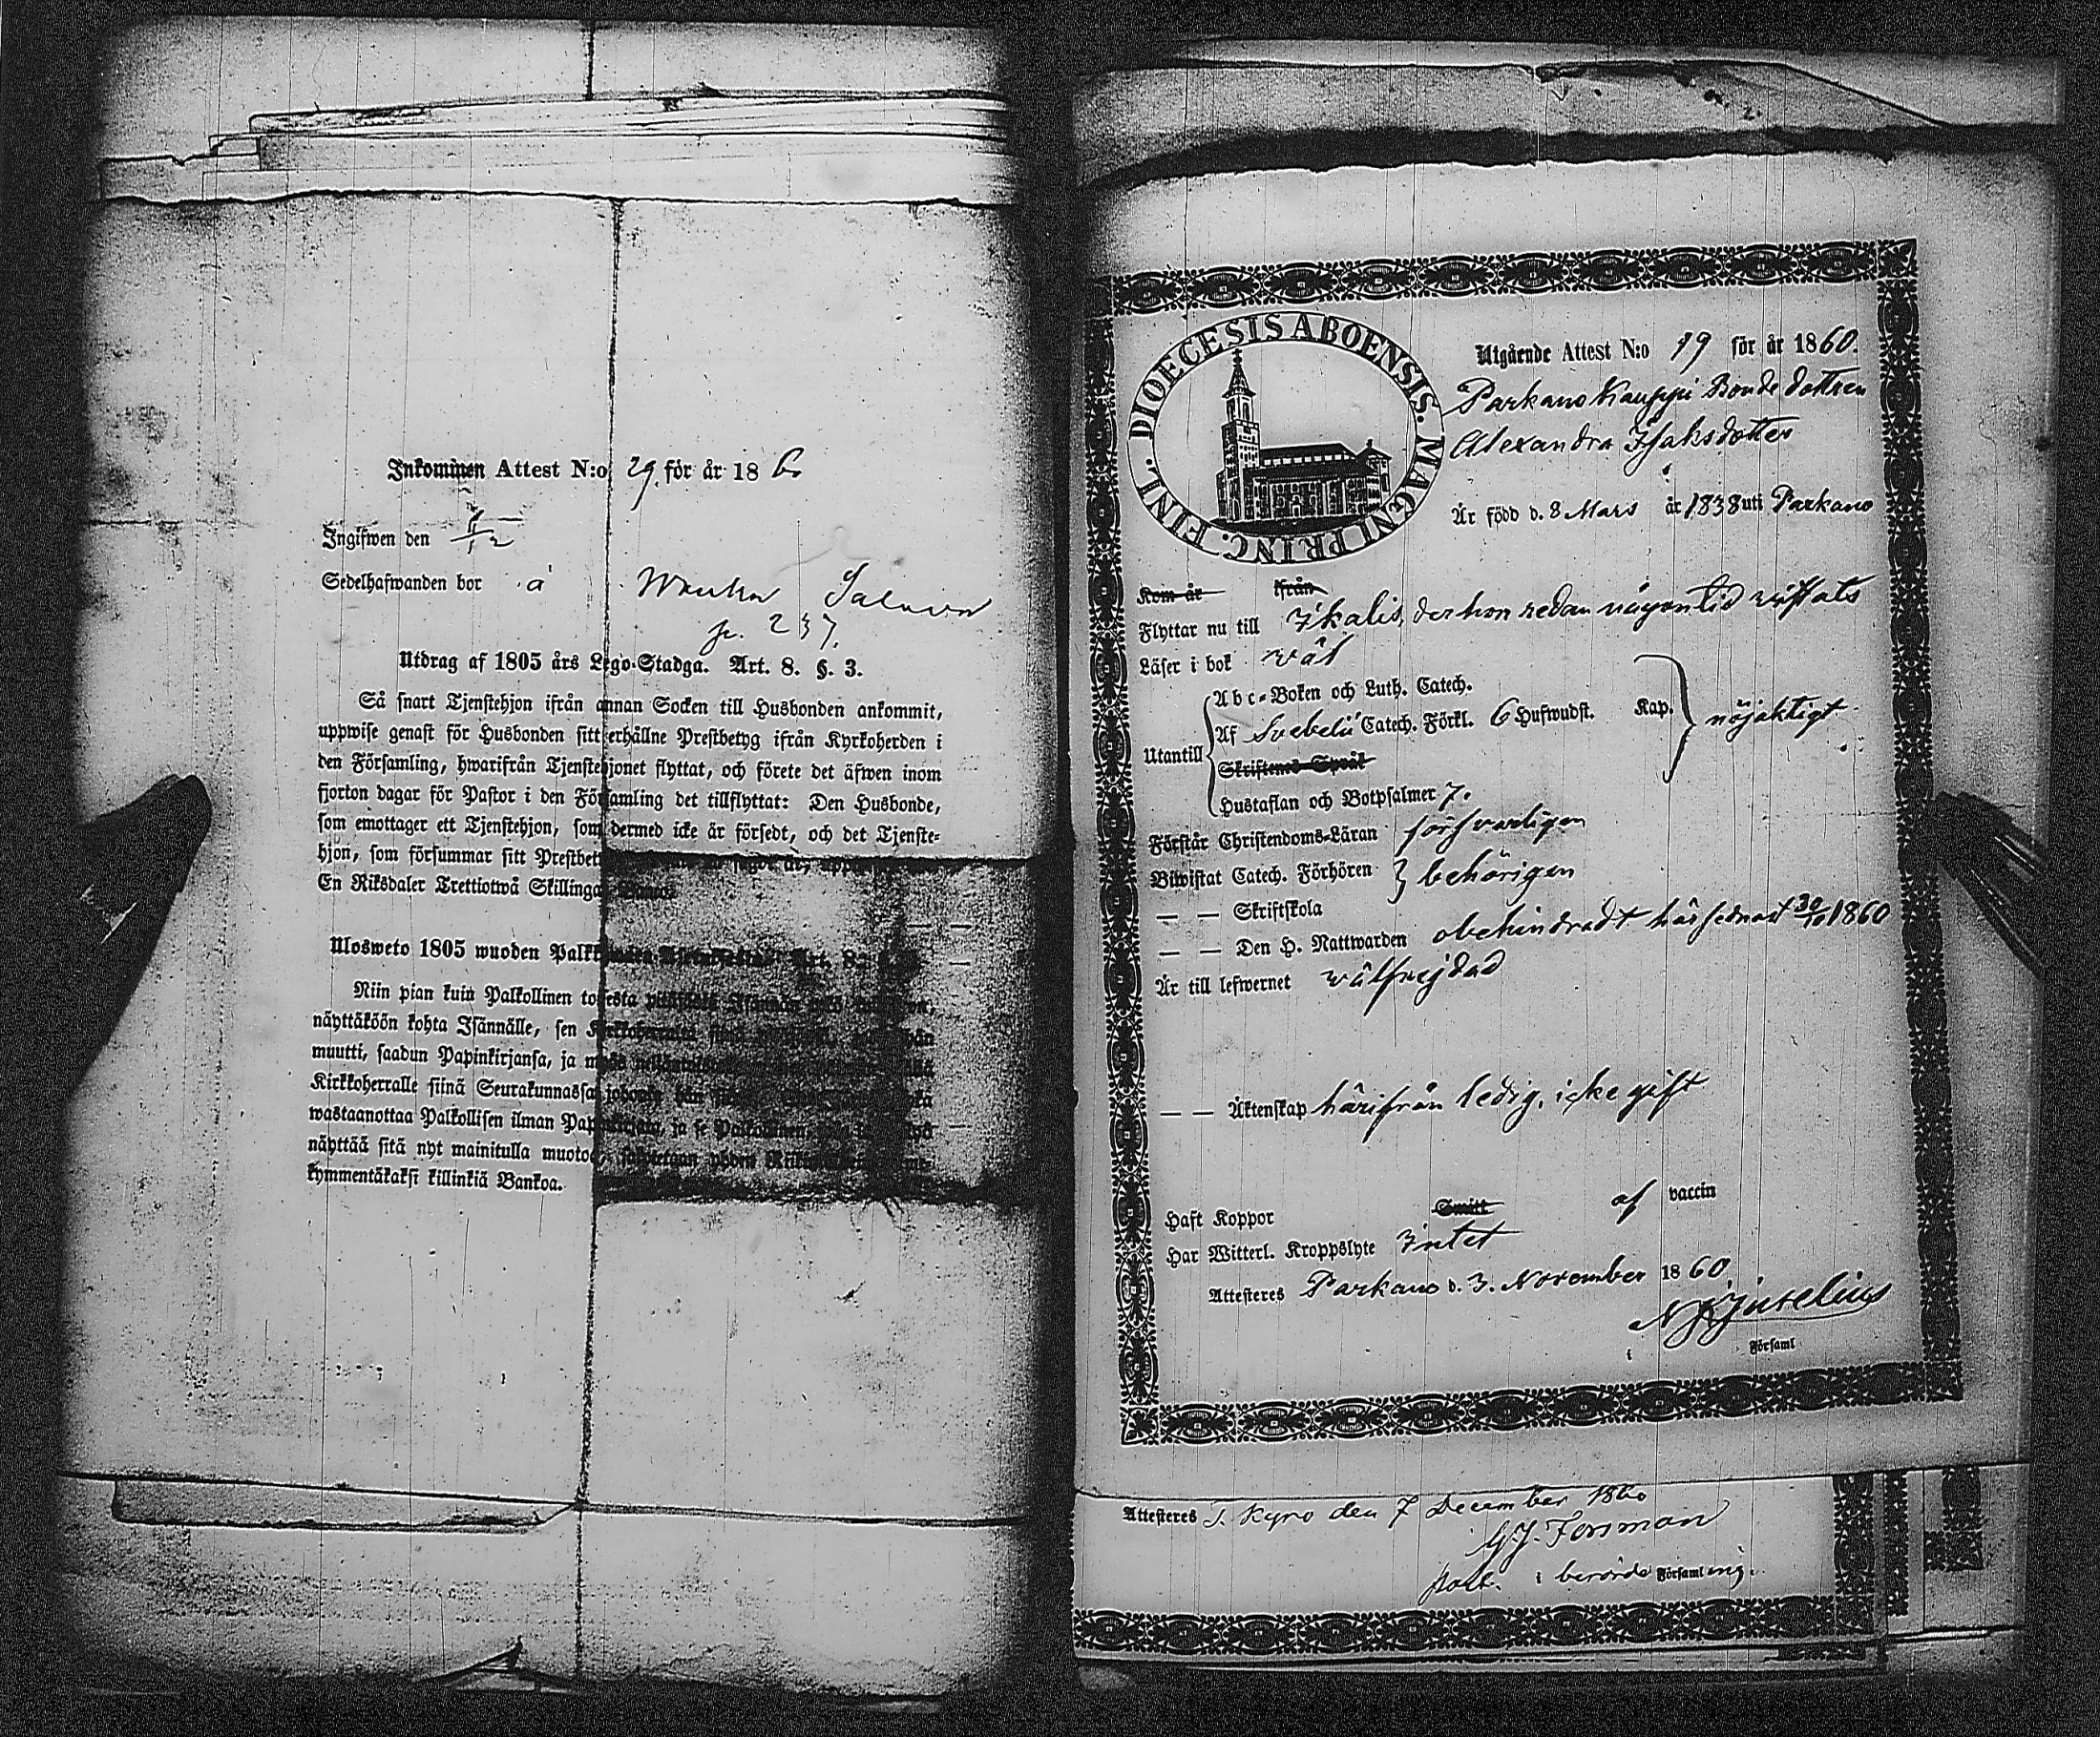 Inkommen Attest N:o 29. för år 18 6
Ingifwen den
Sedelhafwanden bor á
p. 237.
Utdrag af 1805 års Lego-Stadga. Art. 8. §. 3.
Så snart Tjenstehjon ifrån annan Socken till Husbonden ankommit,
uppwise genast för Husbonden sitt erhållne Prestbetyg ifrån Kyrkoherden i
den Församling, hwarifrån Tjenstehjonet flyttat, och förete det äfwen inom
fjorton dagar för Pastor i den Församling det tillflyttat: Den Husbonde,
som emottager ett Tjenstehjon, som dermed icke är försedt, och det Tjenste-
hjon, som försummar sitt
En Riksdaler Trettiotwå Skillingar Banco.
Ulosweto 1805 wuoden
Niin pian kuin Palkollinen
näyttäköön kohta Isännälle, sen
muutti, saadun Papinkirjansa, ja
Kirkkoherralle siinä Seurakunnassa, johonka hän
wastaanottaa Palkollisen ilman Papinkirjata, ja se Palkollinen,
näyttää sitä nyt mainitulla muotoa, yhden
kymmentäkaksi killinkiä Bankoa.
DIOECESIS ABOENSIS. MAGNI PRINC. FINL.
Utgående Attest N:o 19 för år 1860.
Parkano Kauppi Bonde dottren
Alexandra Isaksdotter
Är född d. 8 Mars år 1838 uti Parkano
Kom år ifrån
Flyttar nu till Ikalis, der hon redan någon tid wistats
Läser i bok wäl
Utantill
Abc-Boken och Luth. Catech.
Af Svebelii Catech. Förkl. 6 Hufwudst. Kap. nöjaktigt
Skriftenes Språk
Hustaflan och Botpsalmer 7.
Förstår Christendoms-Läran försvarligen
Biwistat Catech. Förhören behörigen
— — Skriftskola
— — Den H. Nattwarden obehindradt här sednast 30/10 1860
Är till lefwernet wälfrejdad
— — Äktenskap härifrån ledig, icke gift
Haft Koppor Smitt af vaccin
Har Witterl. Kroppslyte Intet
Attesteres Parkano d. 3. November 1860
i Församl
Attesteres T. Kyro den 7 December 1860
G.J. Forsman
past. i berörde Församling.